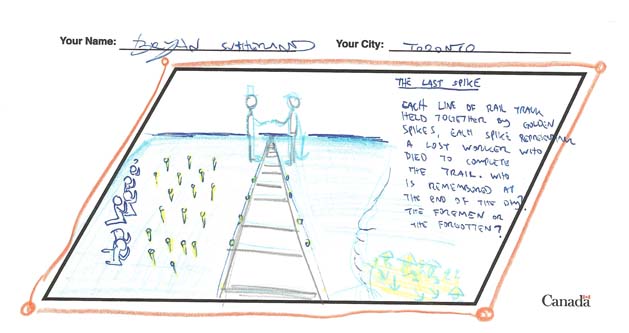 Your Name: BRYAN SUTHERLAND Your City: TORONTO
THE LAST SPIKE
EACH LINE OF RAIL TRACK
HELD TOGETHER BY GOLDEN
SPIKES, EACH SPIKE REPRESENTING
A LOST WORKER WHO
DIED TO COMPLETE
THE TRAIL. WHO
IS REMEMBERED AT
THE END OF THE DAY?
THE FOREMEN OR
THE FORGOTTEN?
Canada